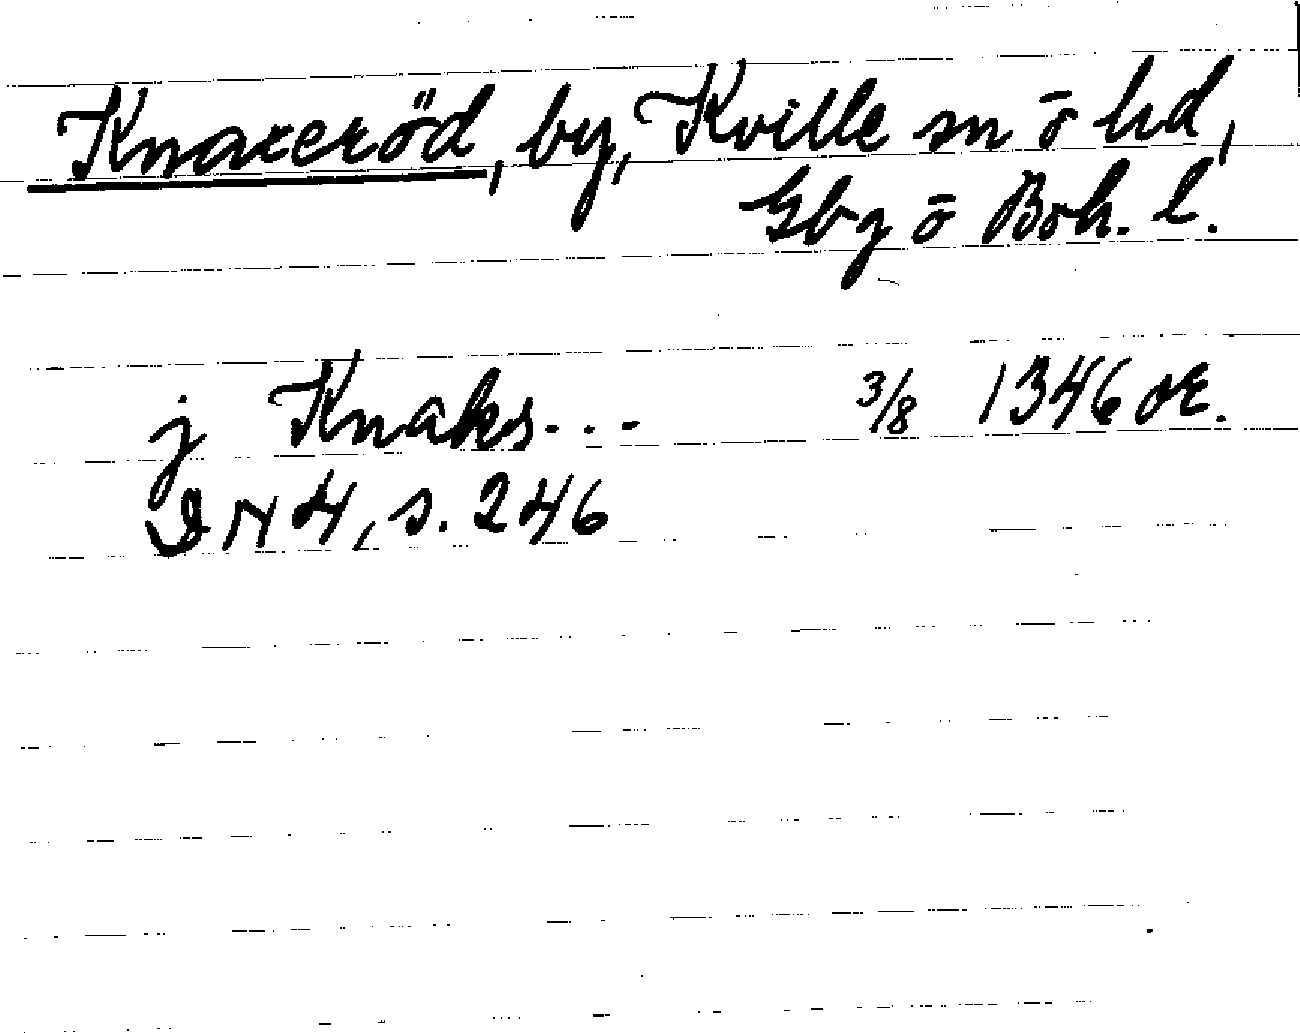 Knaxeröd, by, Kville sn ō hd,
Gbg ō Boh. l.
j Knaks... 3/8 1346 or.
DN 4, s. 246